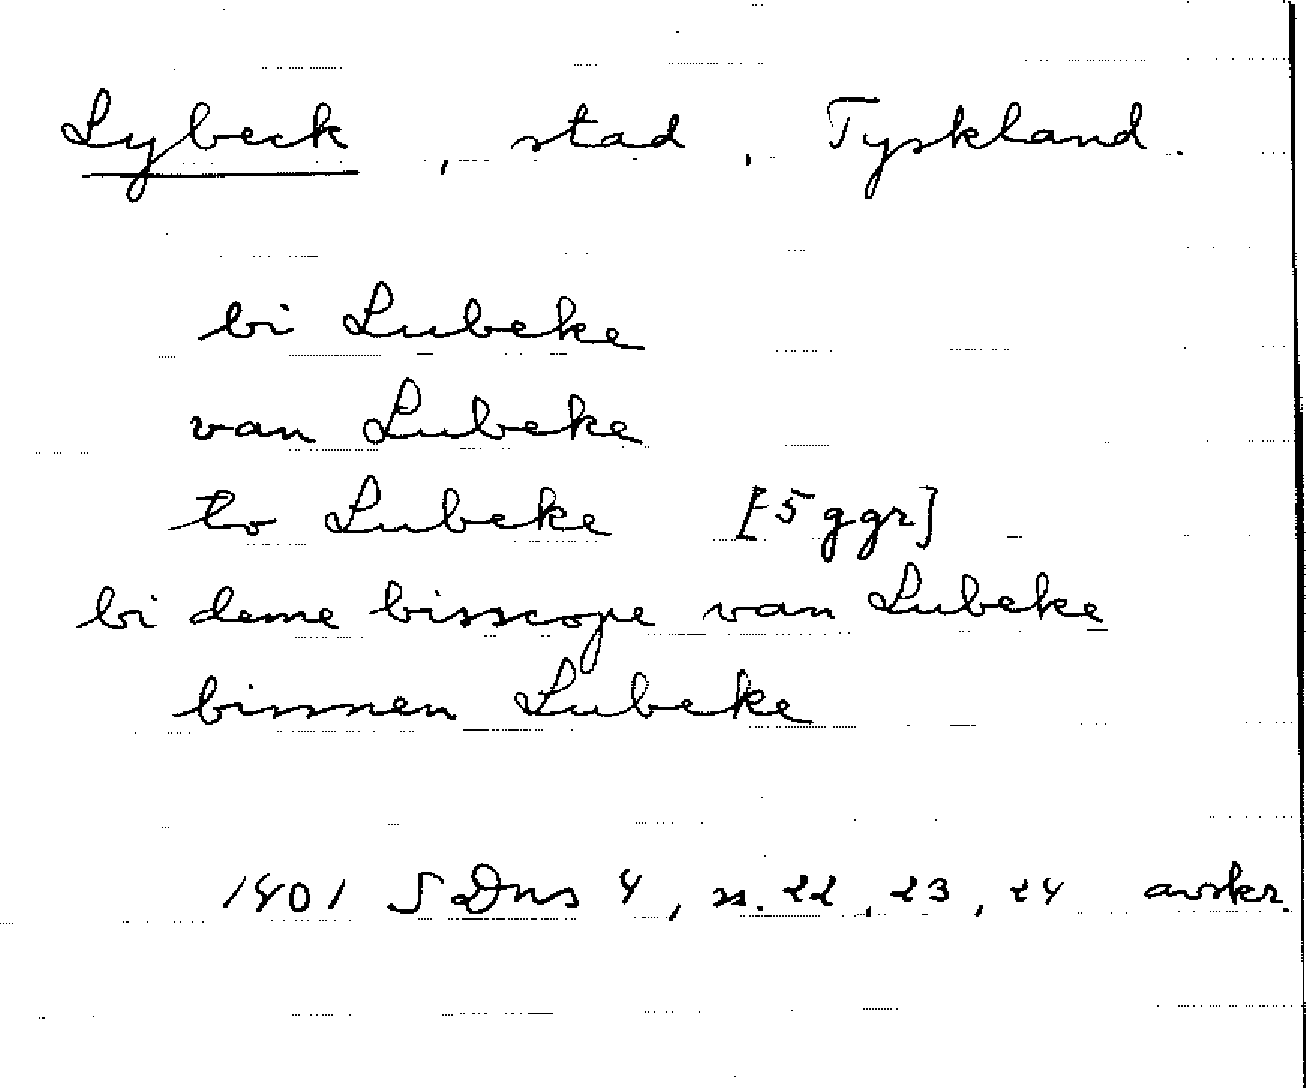 Lybeck, stad, Tyskland.
bi Lubeke
van Lubeke
to Lubeke [5 ggr]
bi deme bisscope van Lubeke
binnen Lubeke
1401 SDns 4, s. 22, 23, 24 avskr.